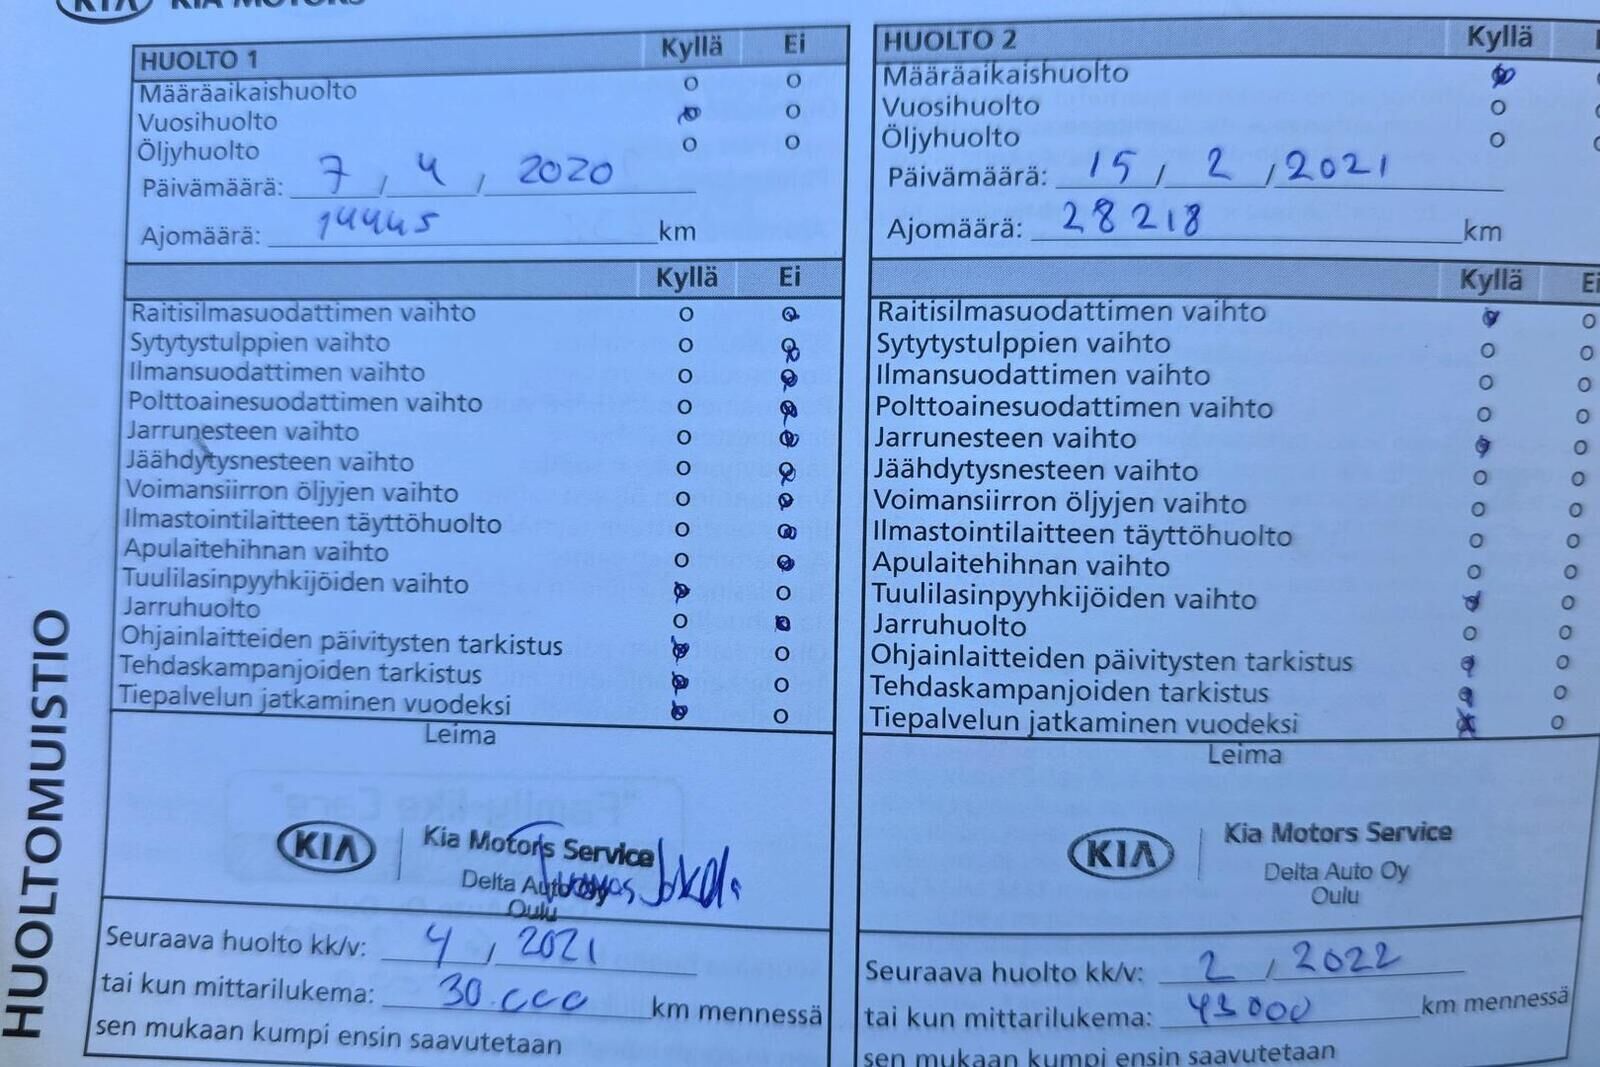 KIA KIA MOTORS
HUOLTOMUISTIO
HUOLTO 1 Kyllä Ei
Määräaikaishuolto o o
Vuosihuolto o o
Öljyhuolto o o
Päivämäärä: 7 / 4 / 2020
Ajomäärä: 14445 km
Kyllä Ei
Raitisilmasuodattimen vaihto o o
Sytytystulppien vaihto o o
Ilmansuodattimen vaihto o o
Polttoainesuodattimen vaihto o o
Jarrunesteen vaihto o o
Jäähdytysnesteen vaihto o o
Voimansiirron öljyjen vaihto o o
Ilmastointilaitteen täyttöhuolto o o
Apulaitehihnan vaihto o o
Tuulilasinpyyhkijöiden vaihto o o
Jarruhuolto o o
Ohjainlaitteiden päivitysten tarkistus o o
Tehdaskampanjoiden tarkistus o o
Tiepalvelun jatkaminen vuodeksi o o
Leima
KIA Kia Motors Service
Delta Auto Oy
Oulu
Seuraava huolto kk/v: 4 / 2021
tai kun mittarilukema: 30.000 km mennessä
sen mukaan kumpi ensin saavutetaan
HUOLTO 2 Kyllä
Määräaikaishuolto o o
Vuosihuolto o o
Öljyhuolto o o
Päivämäärä: 15 / 2 / 2021
Ajomäärä: 28218 km
Kyllä Ei
Raitisilmasuodattimen vaihto o o
Sytytystulppien vaihto o o
Ilmansuodattimen vaihto o o
Polttoainesuodattimen vaihto o o
Jarrunesteen vaihto o o
Jäähdytysnesteen vaihto o o
Voimansiirron öljyjen vaihto o o
Ilmastointilaitteen täyttöhuolto o o
Apulaitehihnan vaihto o o
Tuulilasinpyyhkijöiden vaihto o o
Jarruhuolto o o
Ohjainlaitteiden päivitysten tarkistus o o
Tehdaskampanjoiden tarkistus o o
Tiepalvelun jatkaminen vuodeksi o o
Leima
KIA Kia Motors Service
Delta Auto Oy
Oulu
Seuraava huolto kk/v: 2 / 2022
tai kun mittarilukema: 43000 km mennessä
sen mukaan kumpi ensin saavutetaan